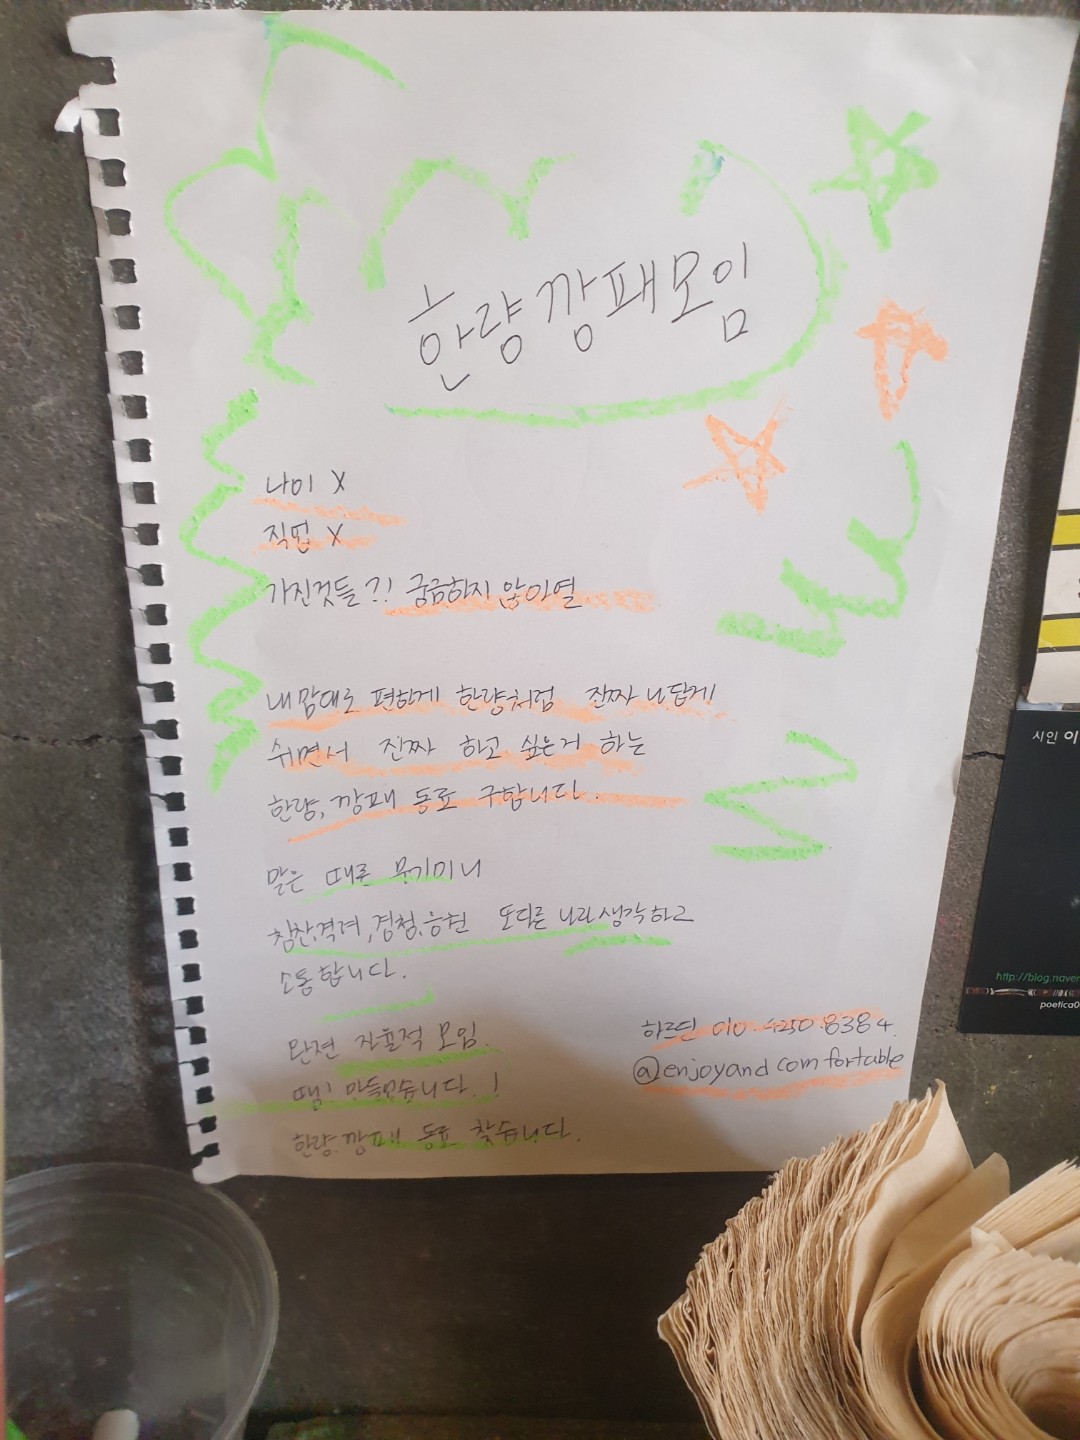 한량깡패모임
나이 X
직업 X
가진것들?! 궁금하지 않아열
내맘대로 편하게 한량처럼 진짜 나답게
쉬면서 진짜 하고 싶은거 하는
한량, 깡패 동료 구합니다.
말은 때론 무기이니
칭찬,격려,경청,응원 또다른 나라 생각하고
소통합니다.
완전 자율적 모임.
땜! 만들었습니다.!
한량.깡패 동료 찾습니다.
하르딘 010.4250.8384.
@enjoyand comfortable
시인 이
http://blog.naver
poetica0